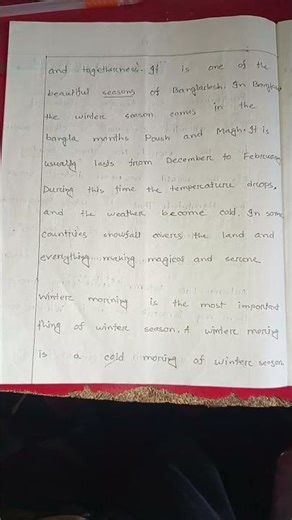 and togetherness. It is one of the
beautiful seasons of Bangladesh. In Bangla
the winter season comes in the
bangla months Poush and Magh. It is
usually lasts from December to February
During this time the temperature drops.
and the weather become cold. In some
countries snowfall covers the land and
everything making magical and serene
Winter morning is the most important
thing of winter season. A winter moring
is a cold moring of winter season